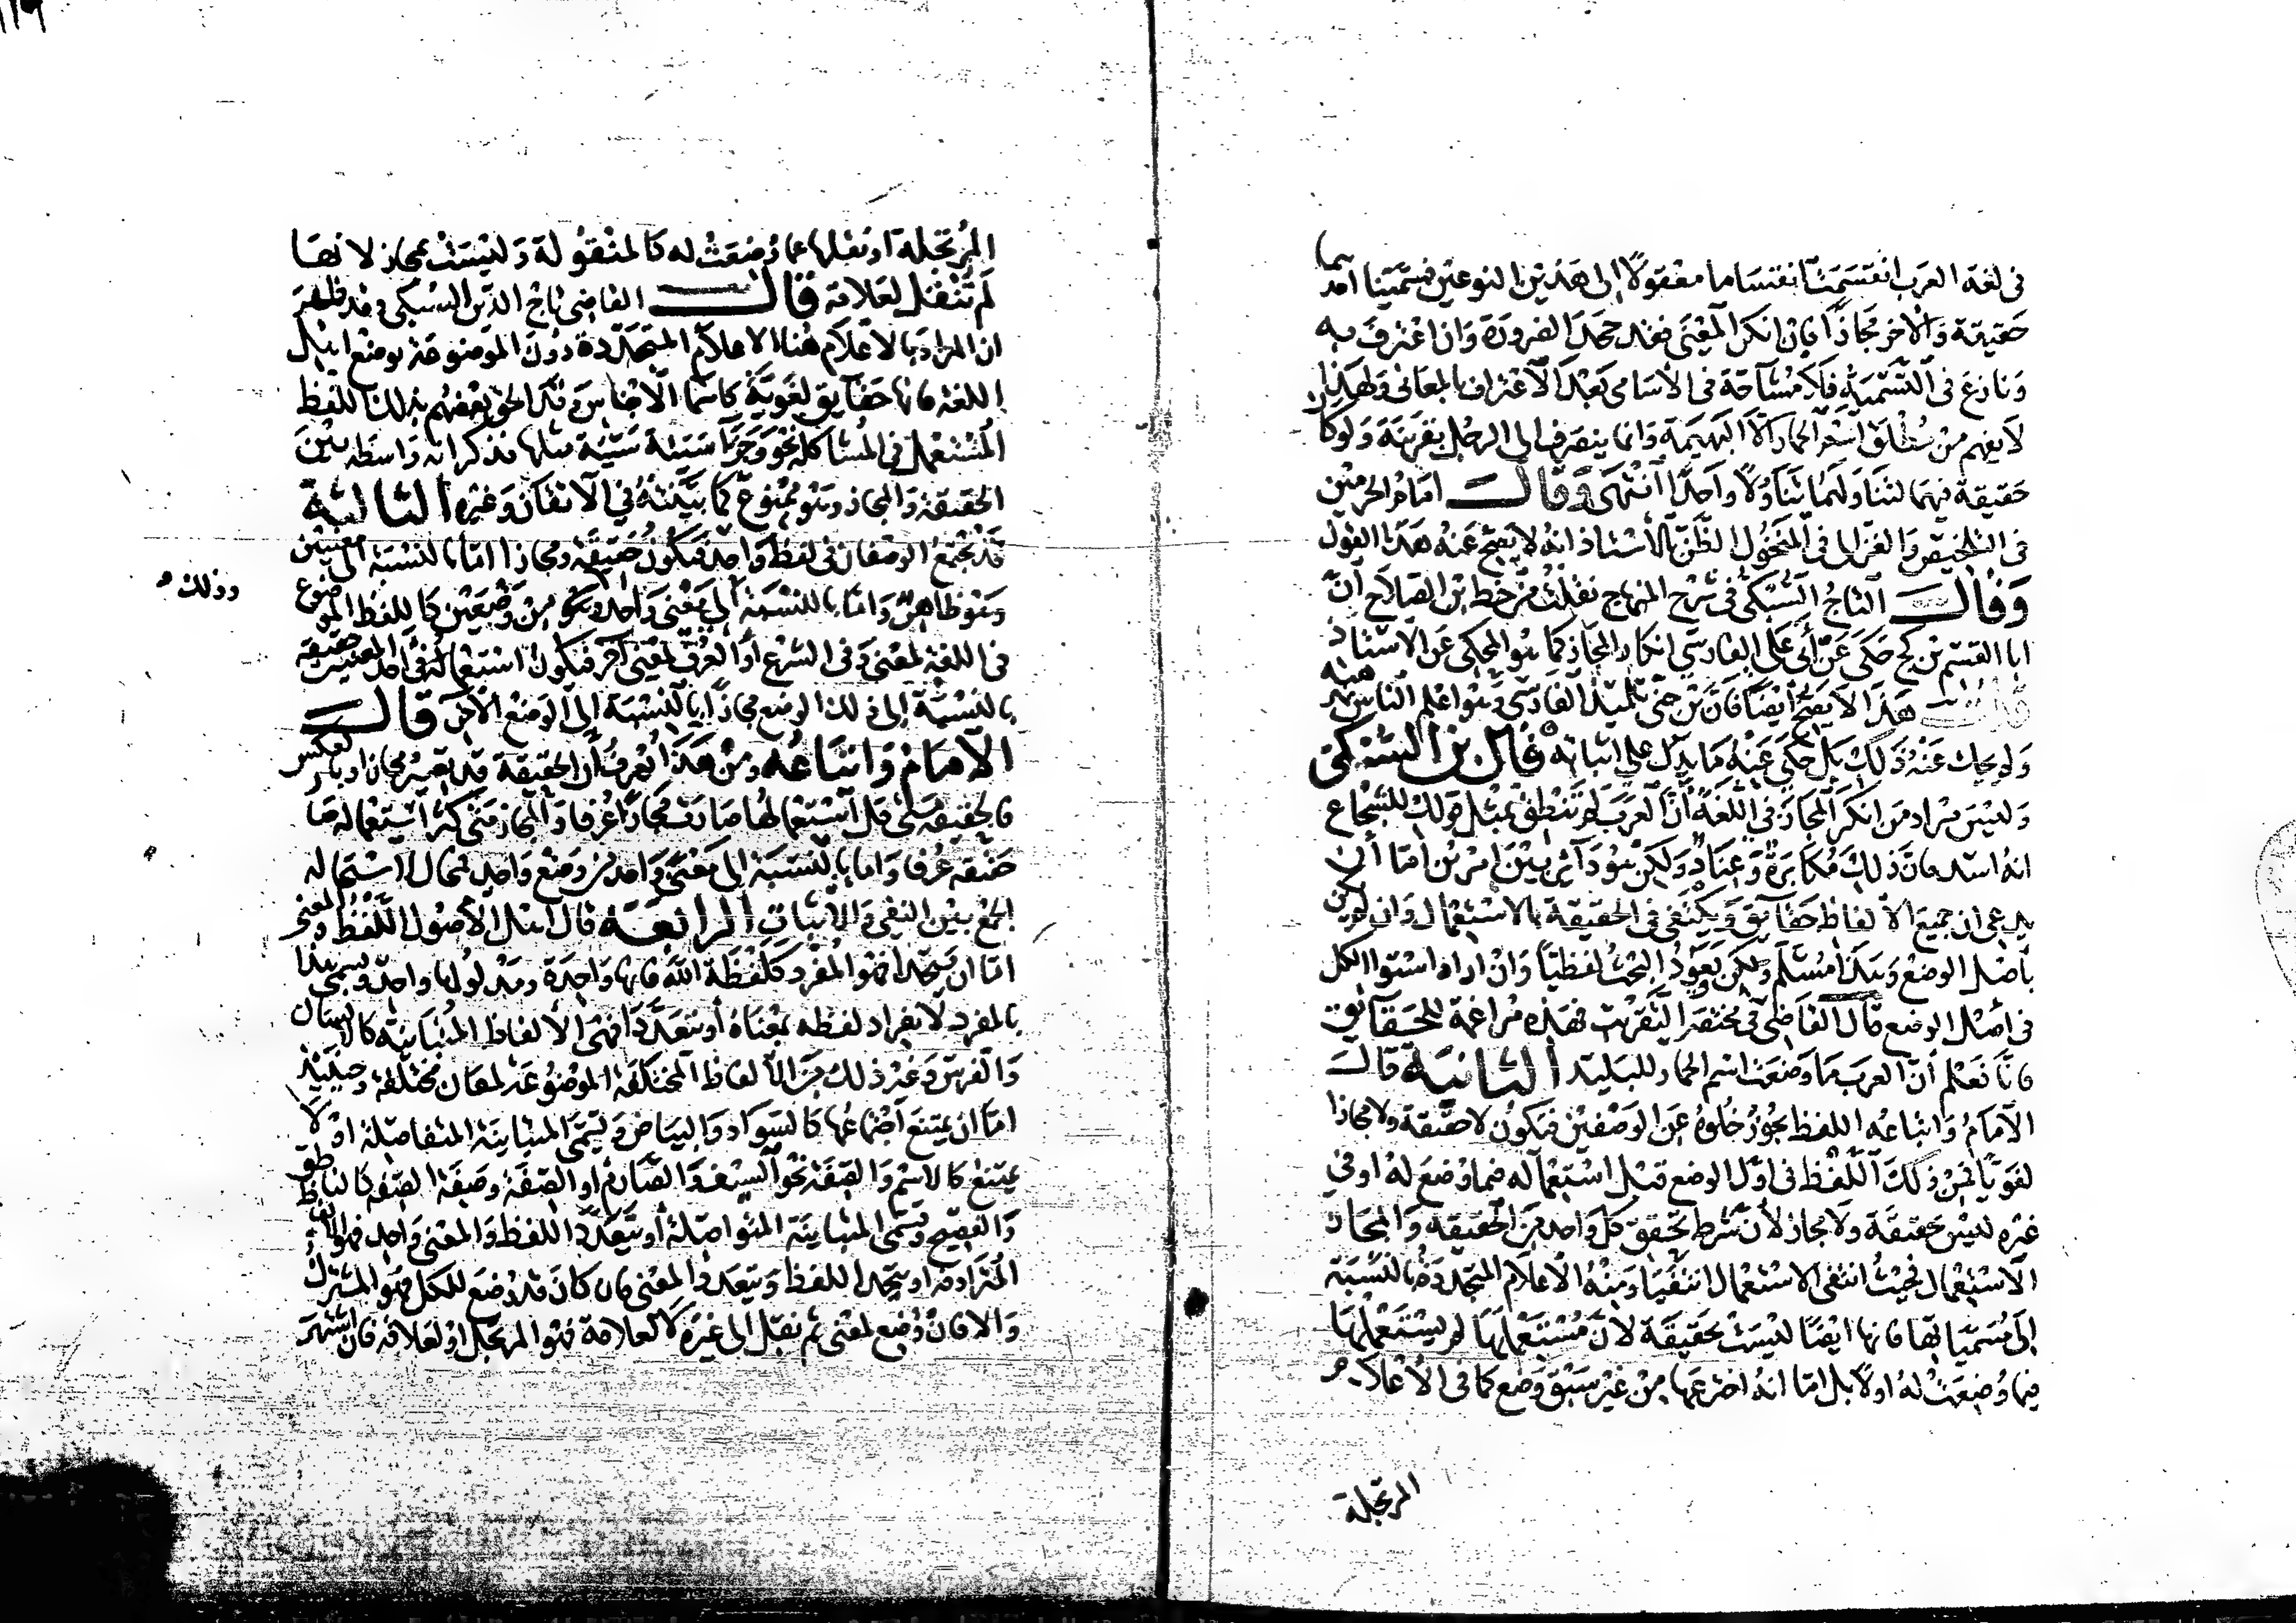 في لغة العرب انقسمت انقساما معقولا الى هذين النوعين فسمينا احدهما
حقيقة والاخر مجازا فان انكر المعنى فقد جحد الضرورة وان اعترف به
ونازع في التسمية فلا مشاحة في الاسامي بعد الاعتراف بالمعاني ولهذا
لا يفهم من مطلق اسم الحمار الا البهيمة وانما ينصرف الى الرجل بقرينة ولو كان
حقيقة فيهما لتناولهما تناولا واحدا انتهى وقال امام الحرمين
في التلخيص والغزالي في المنخول الظن بالاستاذ انه لا يصح عنه هذا القول
وقال التاج السبكي في شرح المنهاج نقلت من خط بن الصلاح ان
ابا القسم بن كج حكى عن ابي علي الفارسي انكار المجاز كما هو المحكي عن الاستاذ
قلت هذا لا يصح ايضا فان بن جني تلميذ الفارسي وهو اعلم الناس بمذهبه
ولم يحك عنه ذلك بل حكى عنه ما يدل على اثباته قال بن السبكي
وليس مراد من انكر المجاز في اللغة ان العرب لم تنطق بمثل قولك للشجاع
انه اسد فان ذلك مكابرة وعناد ولكن هو دائر بين امرين اما ان
يدعي ان جميع الالفاظ حقايق ويكتفي في الحقيقة بالاستعمال وان لم يكن
باصل الوضع وهذا مسلم ولكن يعود البحث لفظيا وان اراد استوا الكل
في اصل الوضع قال القاضي في مختصر التقريب فهذه مراغمة للحقايق
فانا نعلم ان العرب ما وضعت اسم الحمار للبليد الثانية قال
الامام واتباعه اللفظ يجوز خلوه عن الوصفين فيكون لا حقيقة ولا مجازا
لغويا فمن ذلك اللفظ في اول الوضع قبل استعماله فيما وضع له او في
غيره ليس حقيقة ولا مجاز لان شرط تحقق كل واحد من الحقيقة والمجاز
الاستعمال فحيث انتفى الاستعمال انتفيا ومنه الاعلام المتجددة بالنسبة
الى مسمياتها فانها ايضا ليست بحقيقة لان مستعملها لم يستعملها
فيما وضعت له اولا بل اما انه اخترعها من غير سبق وضع كما في الاعلام
المرتجلة
المرتجلة او نقلها عما وضعت له كالمنقولة وليست بمجاز لانها
لم تنقل لعلاقة قال القاضي تاج الدين السبكي وقد ظهر
ان المراد بالاعلام هنا الاعلام المتجددة دون الموضوعة بوضع اهل
اللغة فانها حقايق لغوية كاسما الاجناس وقد الحق بعضهم بذلك اللفظ
المستعمل في المشاكلة نحو وجزا سيئة سيئة مثلها فذكر انه واسطة بين
الحقيقة والمجاز وهو ممنوع كما بينته في الاتقان وغيره الثالثة
قد يجتمع الوصفان في لفظ واحد فيكون حقيقة ومجازا اما بالنسبة الى معنيين
وهو ظاهر واما بالنسبة الى معنى واحد وهو من وضعين كاللفظ الموضوع
وذلك
في اللغة لمعنى وفي الشرع او العرف لمعنى اخر فيكون استعماله في احد المعنيين حقيقة
بالنسبة الى ذلك الوضع مجازا بالنسبة الى الوضع الاخر قال
الامام واتباعه ومن هذا يعرف ان الحقيقة قد تصير مجازا وبالعكس
فالحقيقة متى قل استعمالها صارت مجازا عرفا والمجاز متى كثر استعماله صا
حقيقة عرفا واما بالنسبة الى معنى واحد من وضع واحد فمحال لاستحالة
الجمع بين النفي والاثبات الرابعة قال اهل الاصول اللفظ والمعنى
اما ان يتحدا فهو المفرد كلفظة الله فانها واحدة ومدلولها واحد ويسمى هذا
بالمفرد لانفراد لفظه بمعناه او يتعددا فهي الالفاظ المتباينة كالانسان
والفرس وغير ذلك من الالفاظ المختلفة الموضوعة لمعان مختلفة وحينئذ
اما ان يمتنع اجتماعها كالسواد والبياض وتسمى المتباينة المتفاصلة او لا
يمتنع كالاسم والصفة نحو السيف والصارم او الصفة وصفة الصفة كالناطق
والفصيح وتسمى المتباينة المتواصلة او يتعدد اللفظ والمعنى واحد فهو الالفاظ
المترادفة او يتحد اللفظ ويتعدد المعنى فان كان قد وضع للكل فهو المشترك
والا فان وضع لمعنى ثم نقل الى غيره لا لعلاقة فهو المرتجل او لعلاقة فان اشتهر